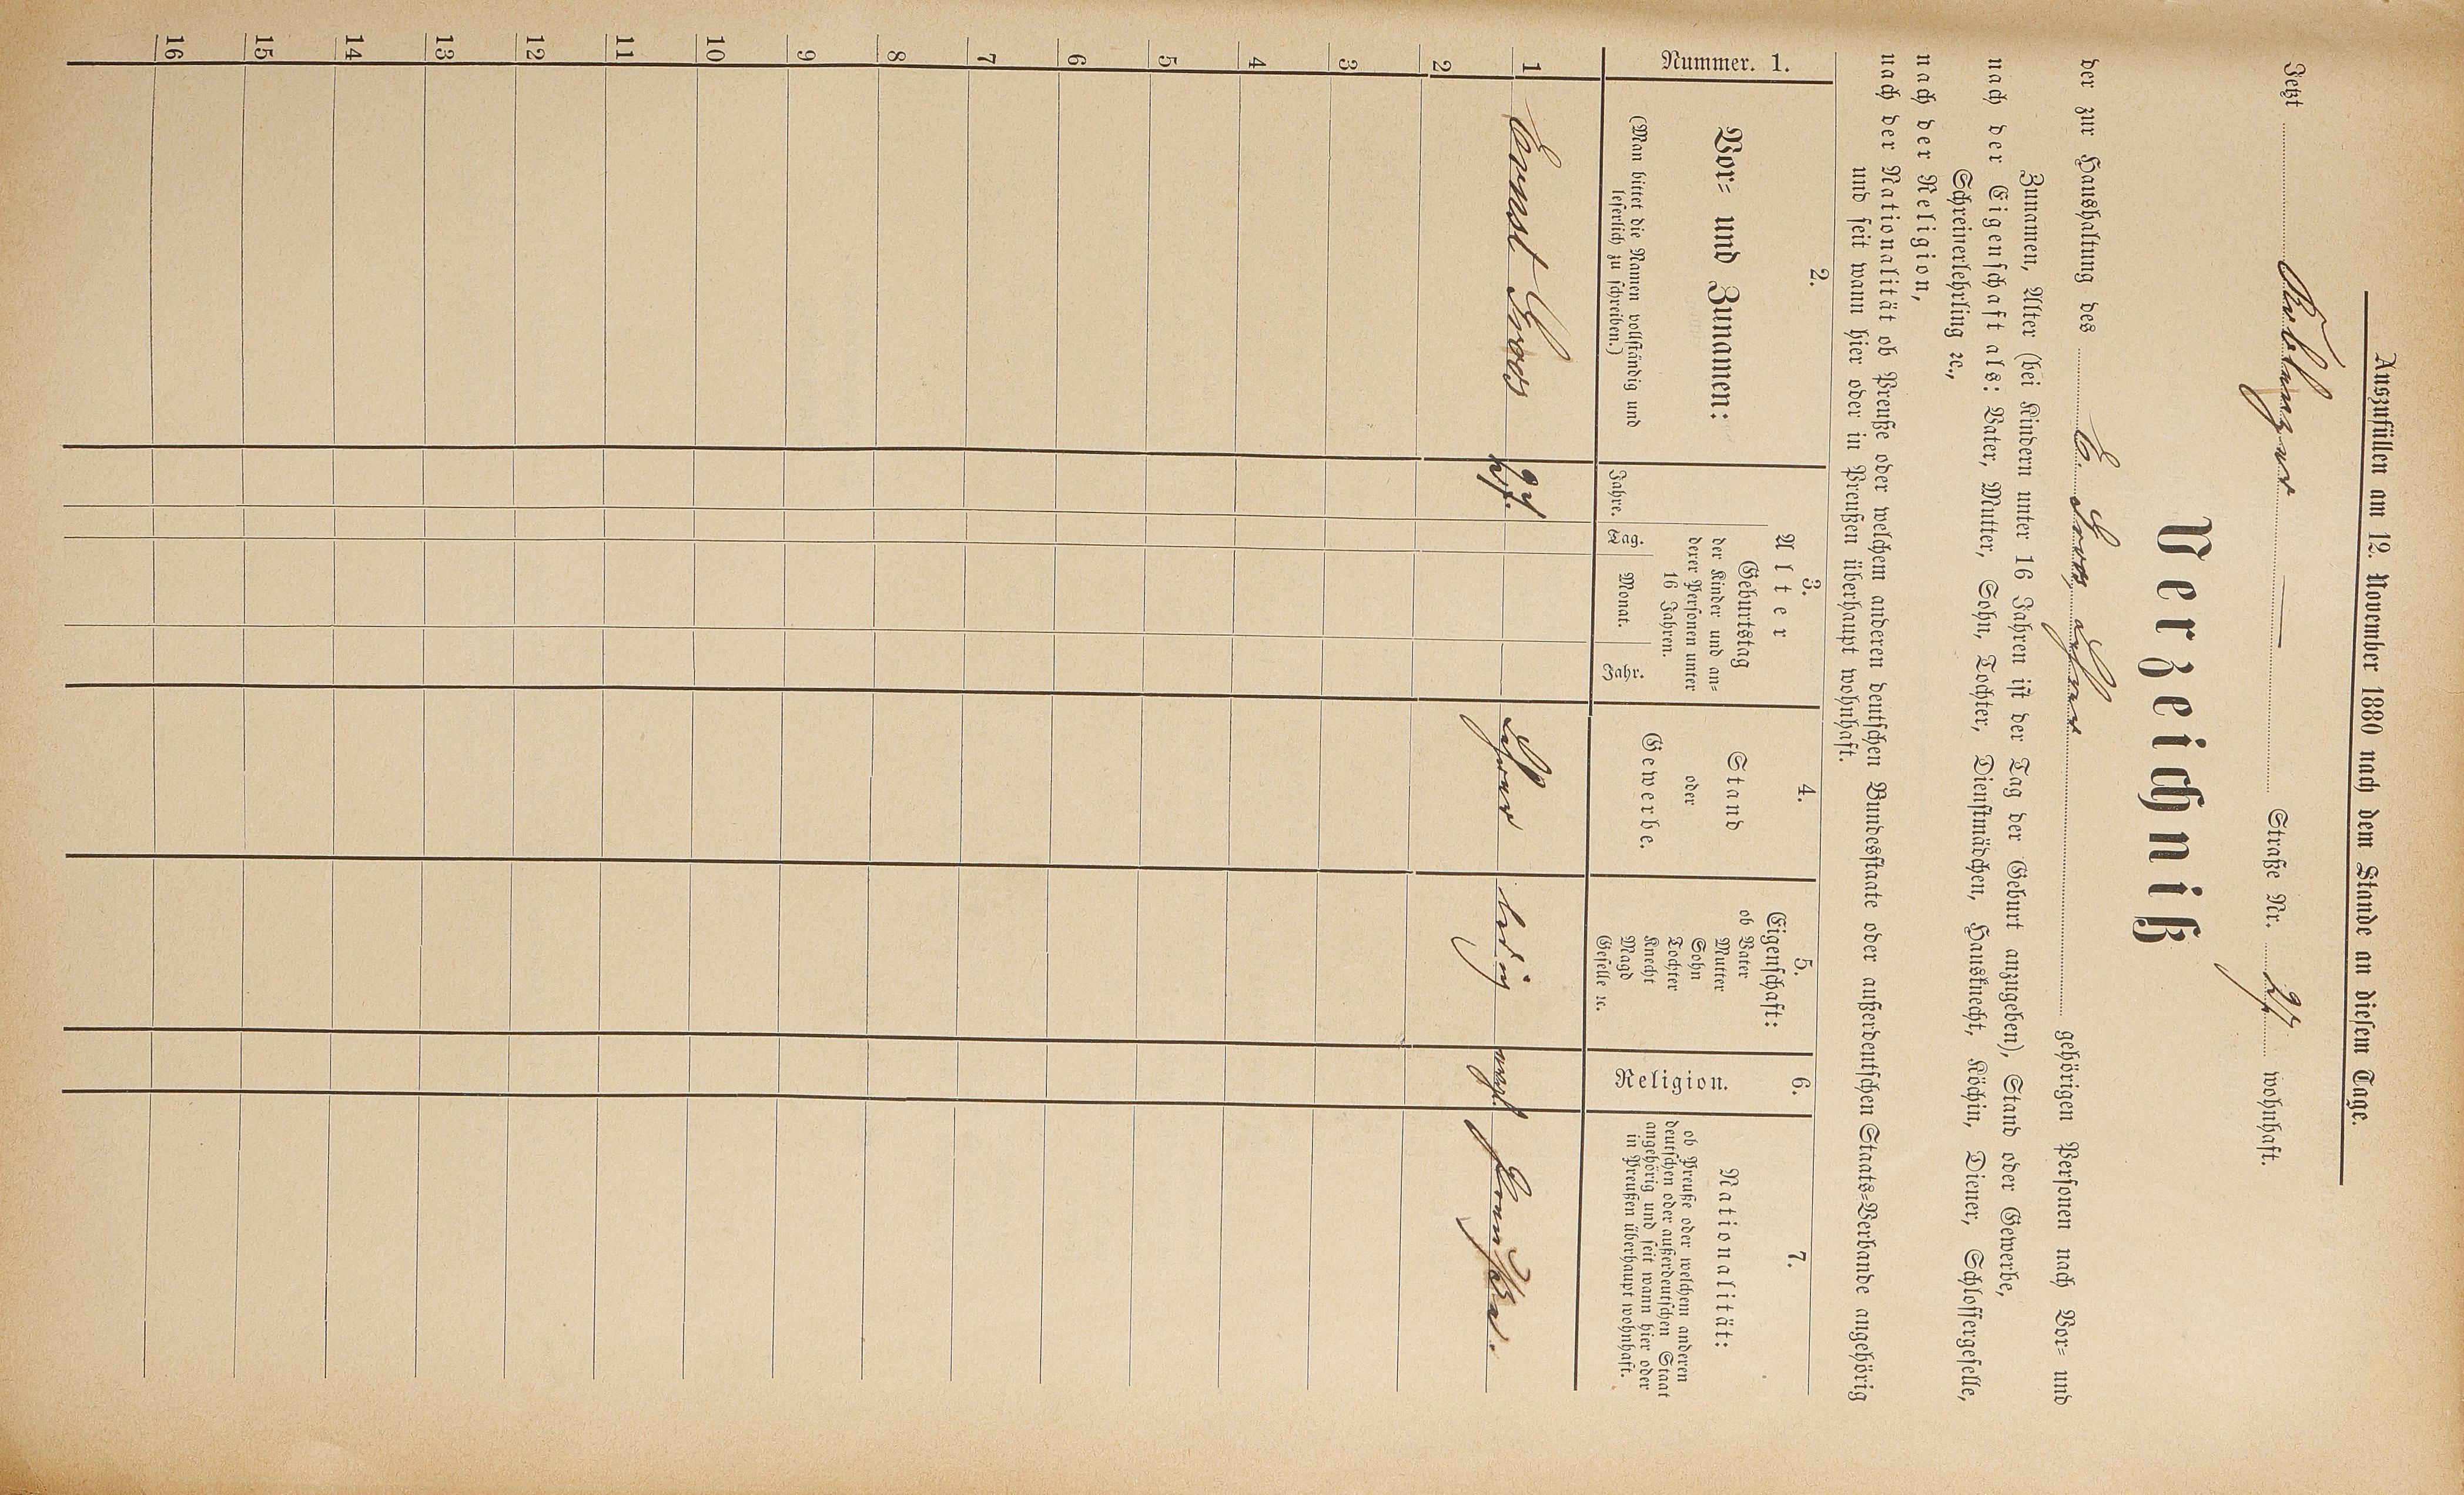 Auszufüllen am 12. November 1880 nach dem Stande an diesem Tage.
Jetzt Coblenzer — Straße Nr. wohnhaft.
Verzeichniß
der zur Haushaltung des E. Groos Lehrer gehörigen Personen nach Vor- und
Zunamen, Alter (bei Kindern unter 16 Jahren ist der Tag der Geburt anzugeben), Stand oder Gewerbe,
nach der Eigenschaft als: Vater, Mutter, Sohn, Tochter, Dienstmädchen, Hausknecht, Köchin, Diener, Schlossergeselle,
Schreinerlehrling ꝛc.,
nach der Religion,
nach der Nationalität ob Preuße oder welchem anderen deutschen Bundesstaate oder außerdeutschen Staats-Verbande angehörig
und seit wann hier oder in Preußen überhaupt wohnhaft.
Nummer. 1.
2.
Vor- und Zunamen:
(Man bittet die Namen vollständig und
leserlich zu schreiben.)
3.
Alter
Jahre.
Geburtstag
der Kinder und an-
derer Personen unter
16 Jahren.
Tag. Monat. Jahr.
4.
Stand
oder
Gewerbe.
5.
Eigenschaft:
ob Vater
Mutter
Sohn
Tochter
Knecht
Magd
Geselle ꝛc.
6.
Religion.
7.
Nationalität:
ob Preuße oder welchem anderen
deutschen oder außerdeutschen Staat
angehörig und seit wann hier oder
in Preußen überhaupt wohnhaft.
1 Ernst Groos Lehrer ledig evgl. Preuße.
2
3
4
5
6
7
8
9
10
11
12
13
14
15
16